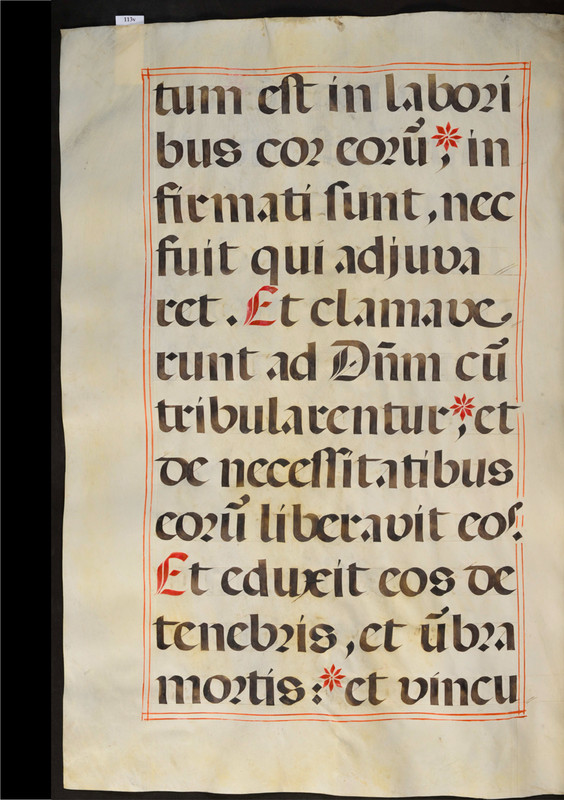 113v
tum est in labori
bus cor eorū; * in
firmati sunt, nec
fuit qui adjuva
ret. Et clamave
runt ad Dn̄m cū
tribularentur; * et
de necessitatibus
eorū liberavit eos.
Et eduxit eos de
tenebris, et ūbra
mortis: * et vincu